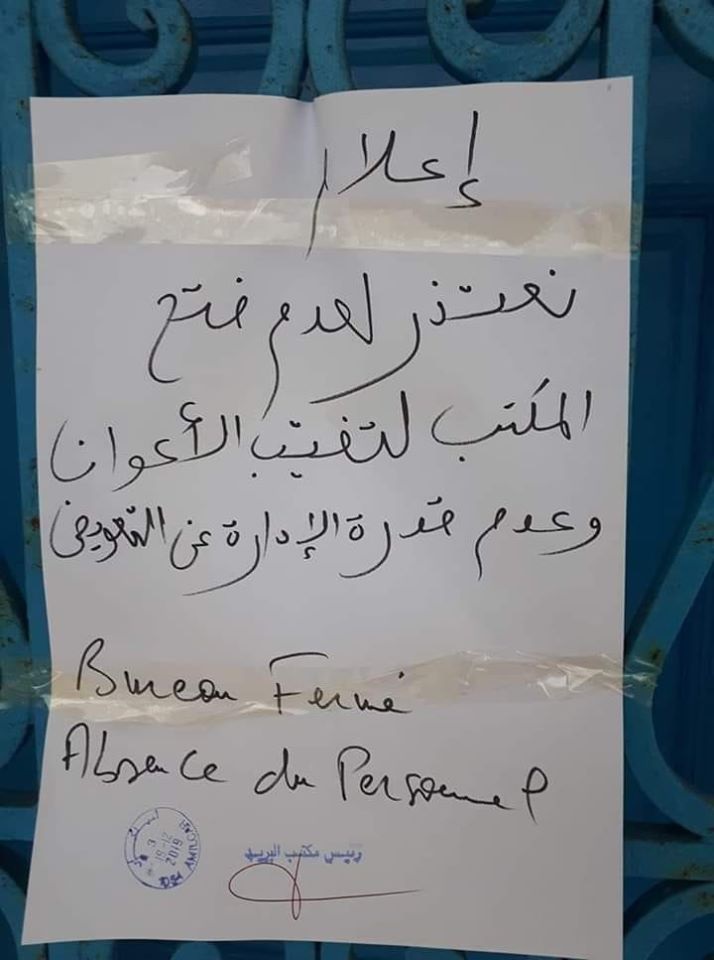 إعلام
نعتذر لعدم فتح
المكتب لتغيب الأعوان
وعدم قدرة الإدارة عن التعويض
Bureau Fermé
Absence du Personnel
رئيس مكتب البريد
2019
AMILCAR